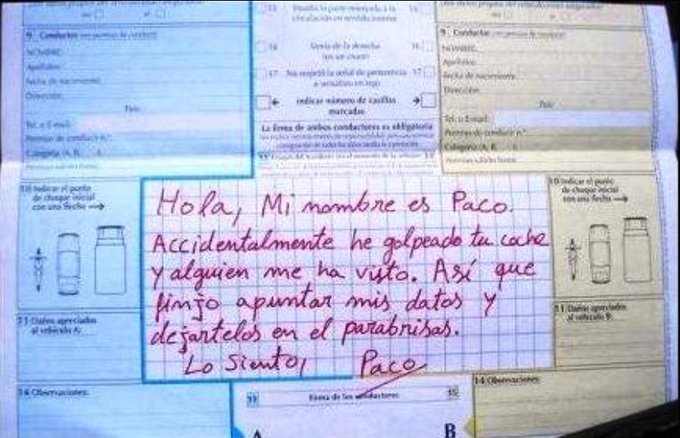 9 Conductor
NOMBRE:
Apellidos:
Fecha de nacimiento:
Dirección:
País:
Tel. o E-mail:
Permiso de conducir n.º
Categoría (A, B, )
16 Venía de la derecha 16
17 No respetó la señal de preferencia 17
o semáforo en rojo
indicar número de casillas
marcadas
La firma de ambos conductores es obligatoria
9 Conductor
NOMBRE:
Apellidos:
Fecha de nacimiento:
Dirección:
País:
Tel. o E-mail:
Permiso de conducir n.º
Categoría (A, B, )
10 Indicar el punto
de choque inicial
con una flecha
Hola, Mi nombre es Paco.
Accidentalmente he golpeado tu coche
y alguien me ha visto. Así que
finjo apuntar mis datos y
dejartelos en el parabrisas.
Lo Siento, Paco
10 Indicar el punto
de choque inicial
con una flecha
11 Daños apreciados
al vehículo A:
11 Daños apreciados
al vehículo B:
14 Observaciones:
15 Firma de los conductores 15
14 Observaciones:
A B